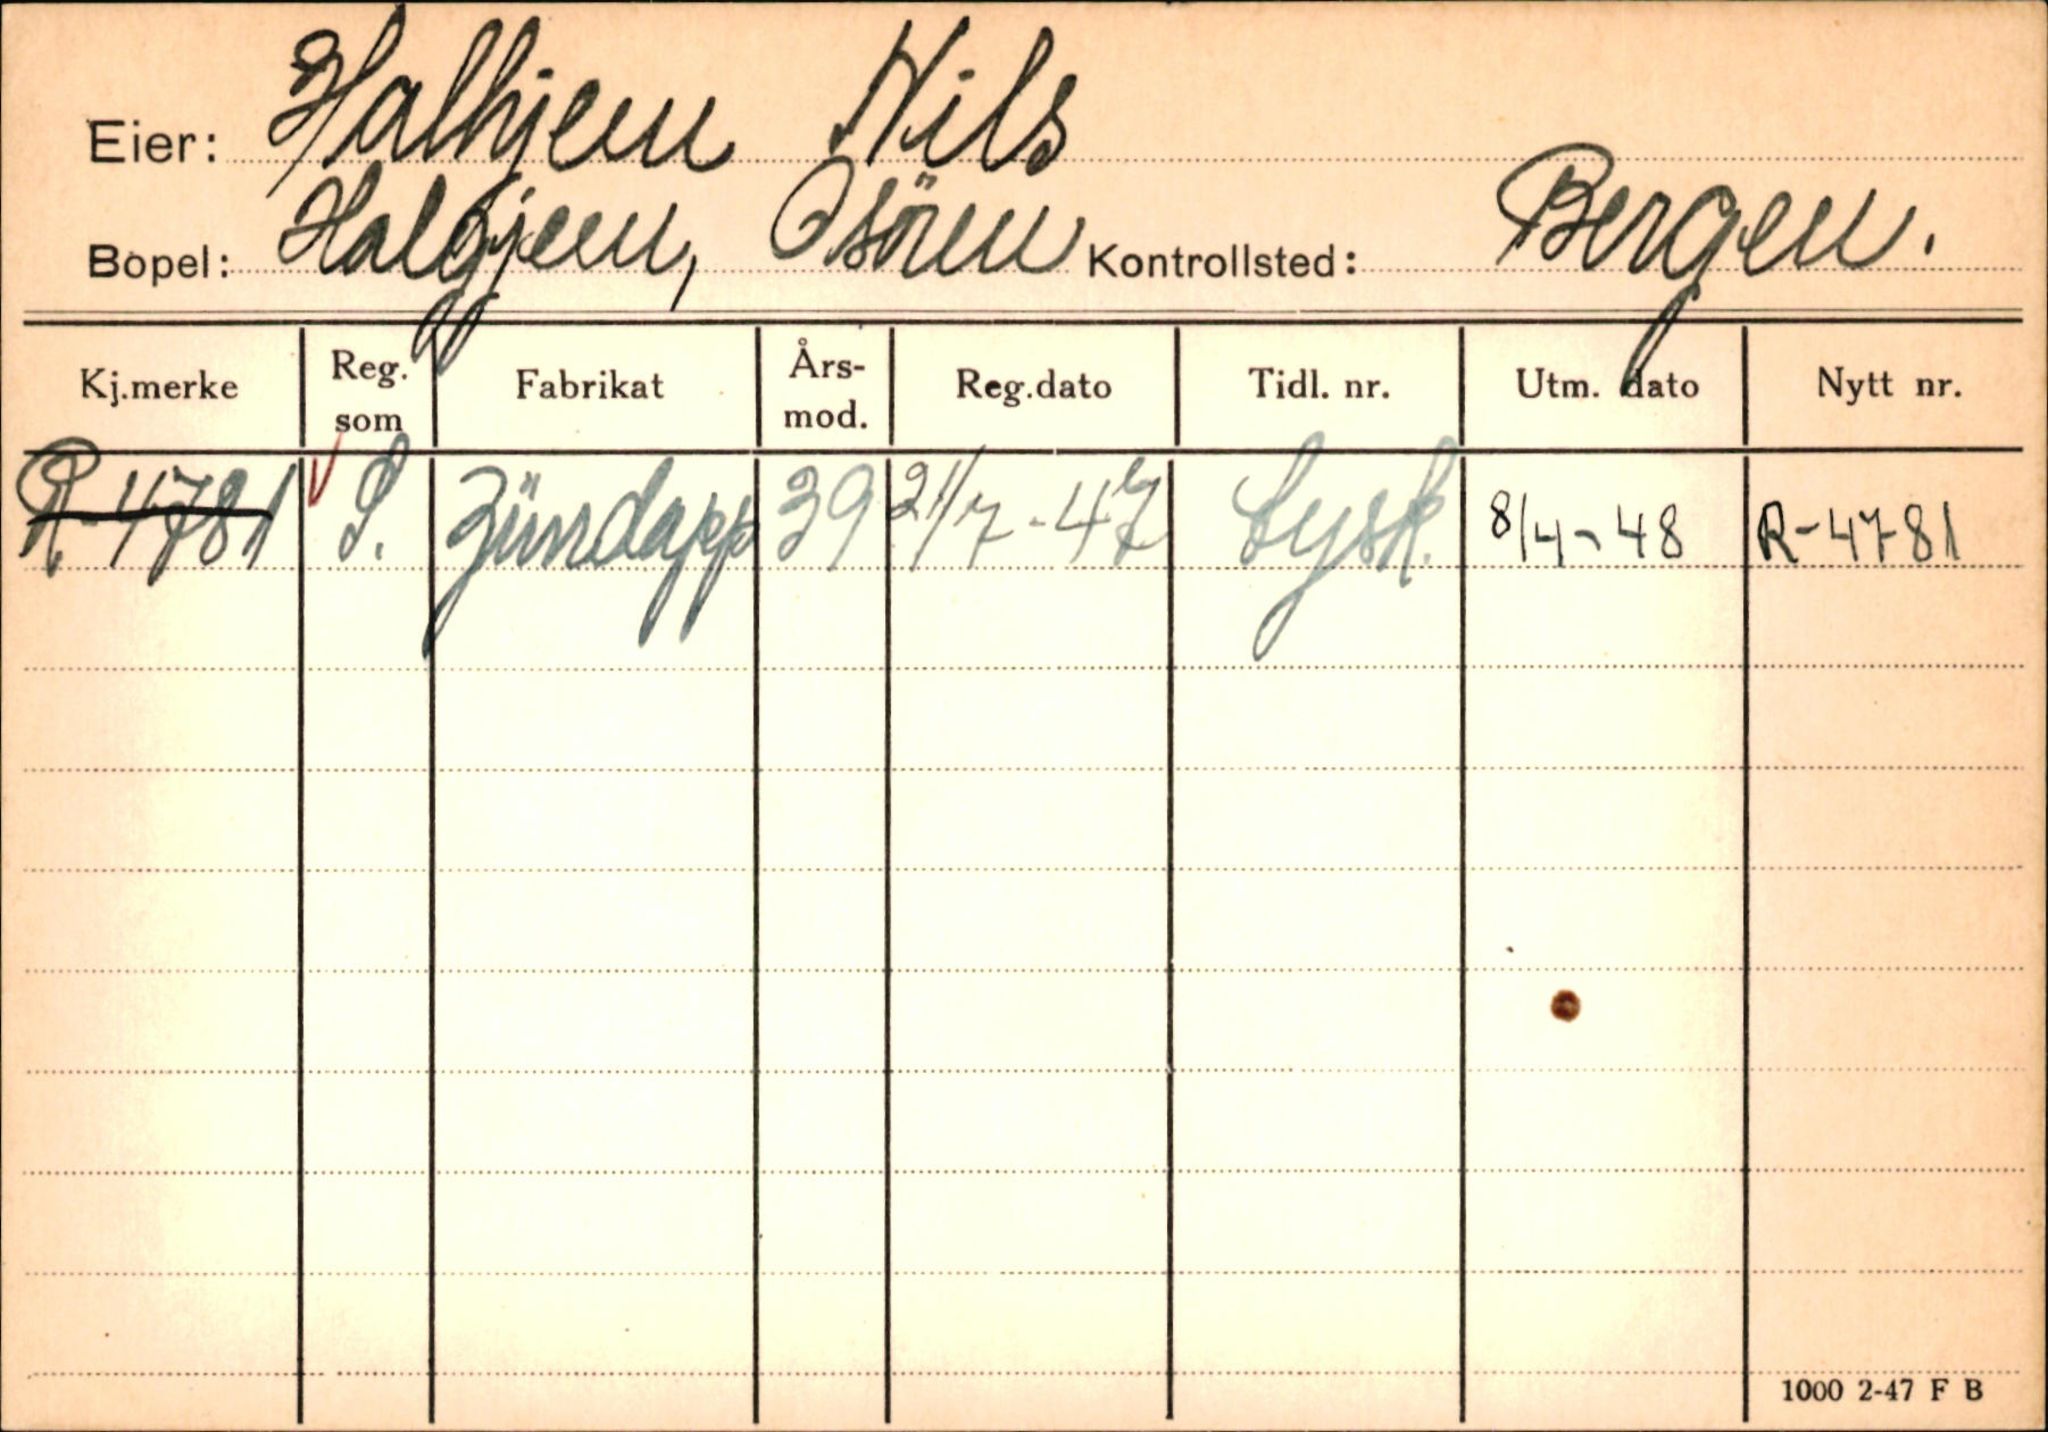 Eier: Halhjem Nils
Bopel: Halhjem, Osören Kontrollsted: Bergen.
Kj.merke Reg. som Fabrikat Års-mod. Reg.dato Tidl. nr. Utm. dato Nytt nr.
R-4781 S. Zündapp 39 21/7-47 tysk. 8/4-48 R-4781
1000 2-47 F B